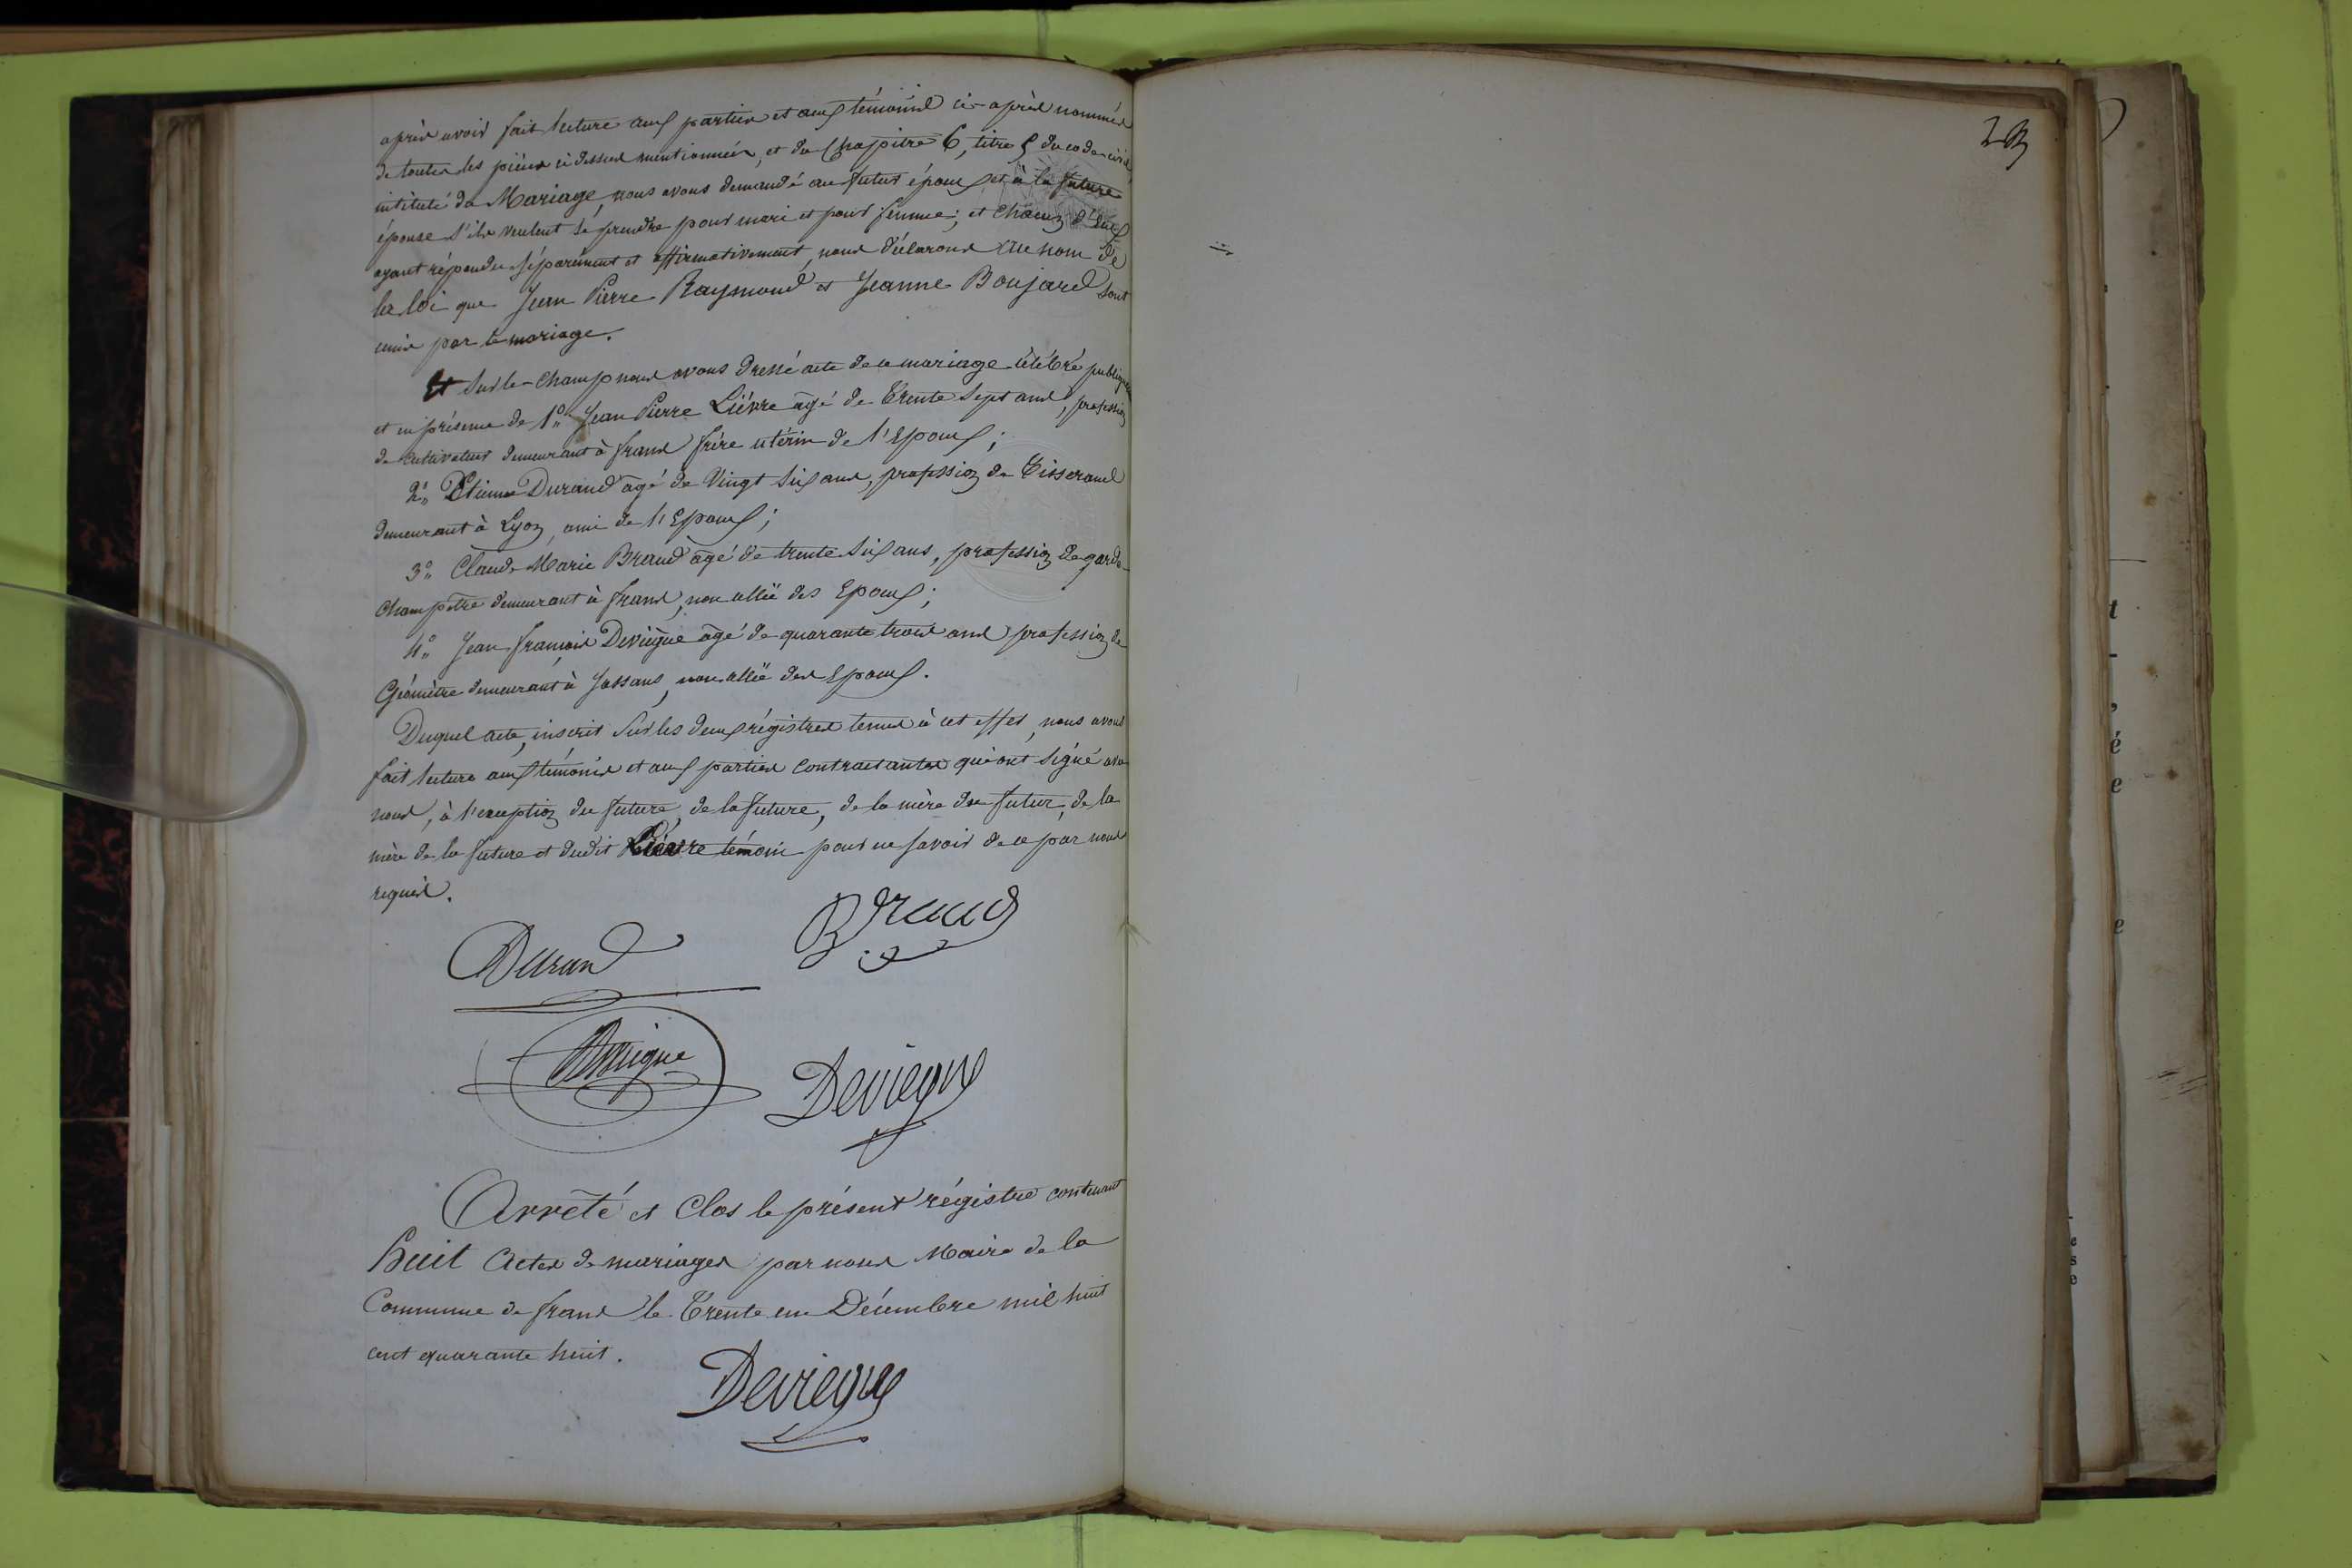 après avoir fait lecture aux parties et aux témoins ci-après nommés
de toutes les pièces ci dessus mentionnées, et du Chapitre 6, titre 5 du code civil,
intitulé du Mariage, nous avons demandé au futur époux et à la future
épouse s'ils veulent se prendre pour mari et pour femme; et chacun d'eux
ayant répondu séparément et affirmativement, nous déclarons au nom de
la loi que Jean Pierre Raymond et Jeanne Boujard sont
unis par le mariage.
Et sur le-champ nous avons dressé acte de ce mariage célébré publiquement
et en présence de 1° Jean Pierre Lièvre âgé de trente sept ans, profession
de cultivateur demeurant à frans frère utérin de l'Epoux;
2° Etienne Durand âgé de vingt six ans, profession de Tisserand
demeurant à Lyon, ami de l'Epoux;
3° Claude Marie Braud âgé de trente six ans, profession de garde-
champêtre demeurant à frans, non allié des Epoux;
4° Jean françois Deviegue âgé de quarante trois ans profession de
Géomètre demeurant à Jassans, non allié des Epoux.
Duquel acte, inscrit sur les deux régistres tenus à cet effet, nous avons
fait lecture aux témoins et aux parties contractantes qui ont signé avec
nous, à l'exception du future, de la future, de la mère du futur, de la
mère de la future et dudit Lièvre témoin pour ne savoir de ce par nous
requis.
Durand
Braud
Deviegue
Deviegue
Arrêté et Clos le présent régistre contenant
huit actes de mariages par nous Maire de la
Commune de frans le trente un Décembre mil huit
cent quarante huit.
Deviegue